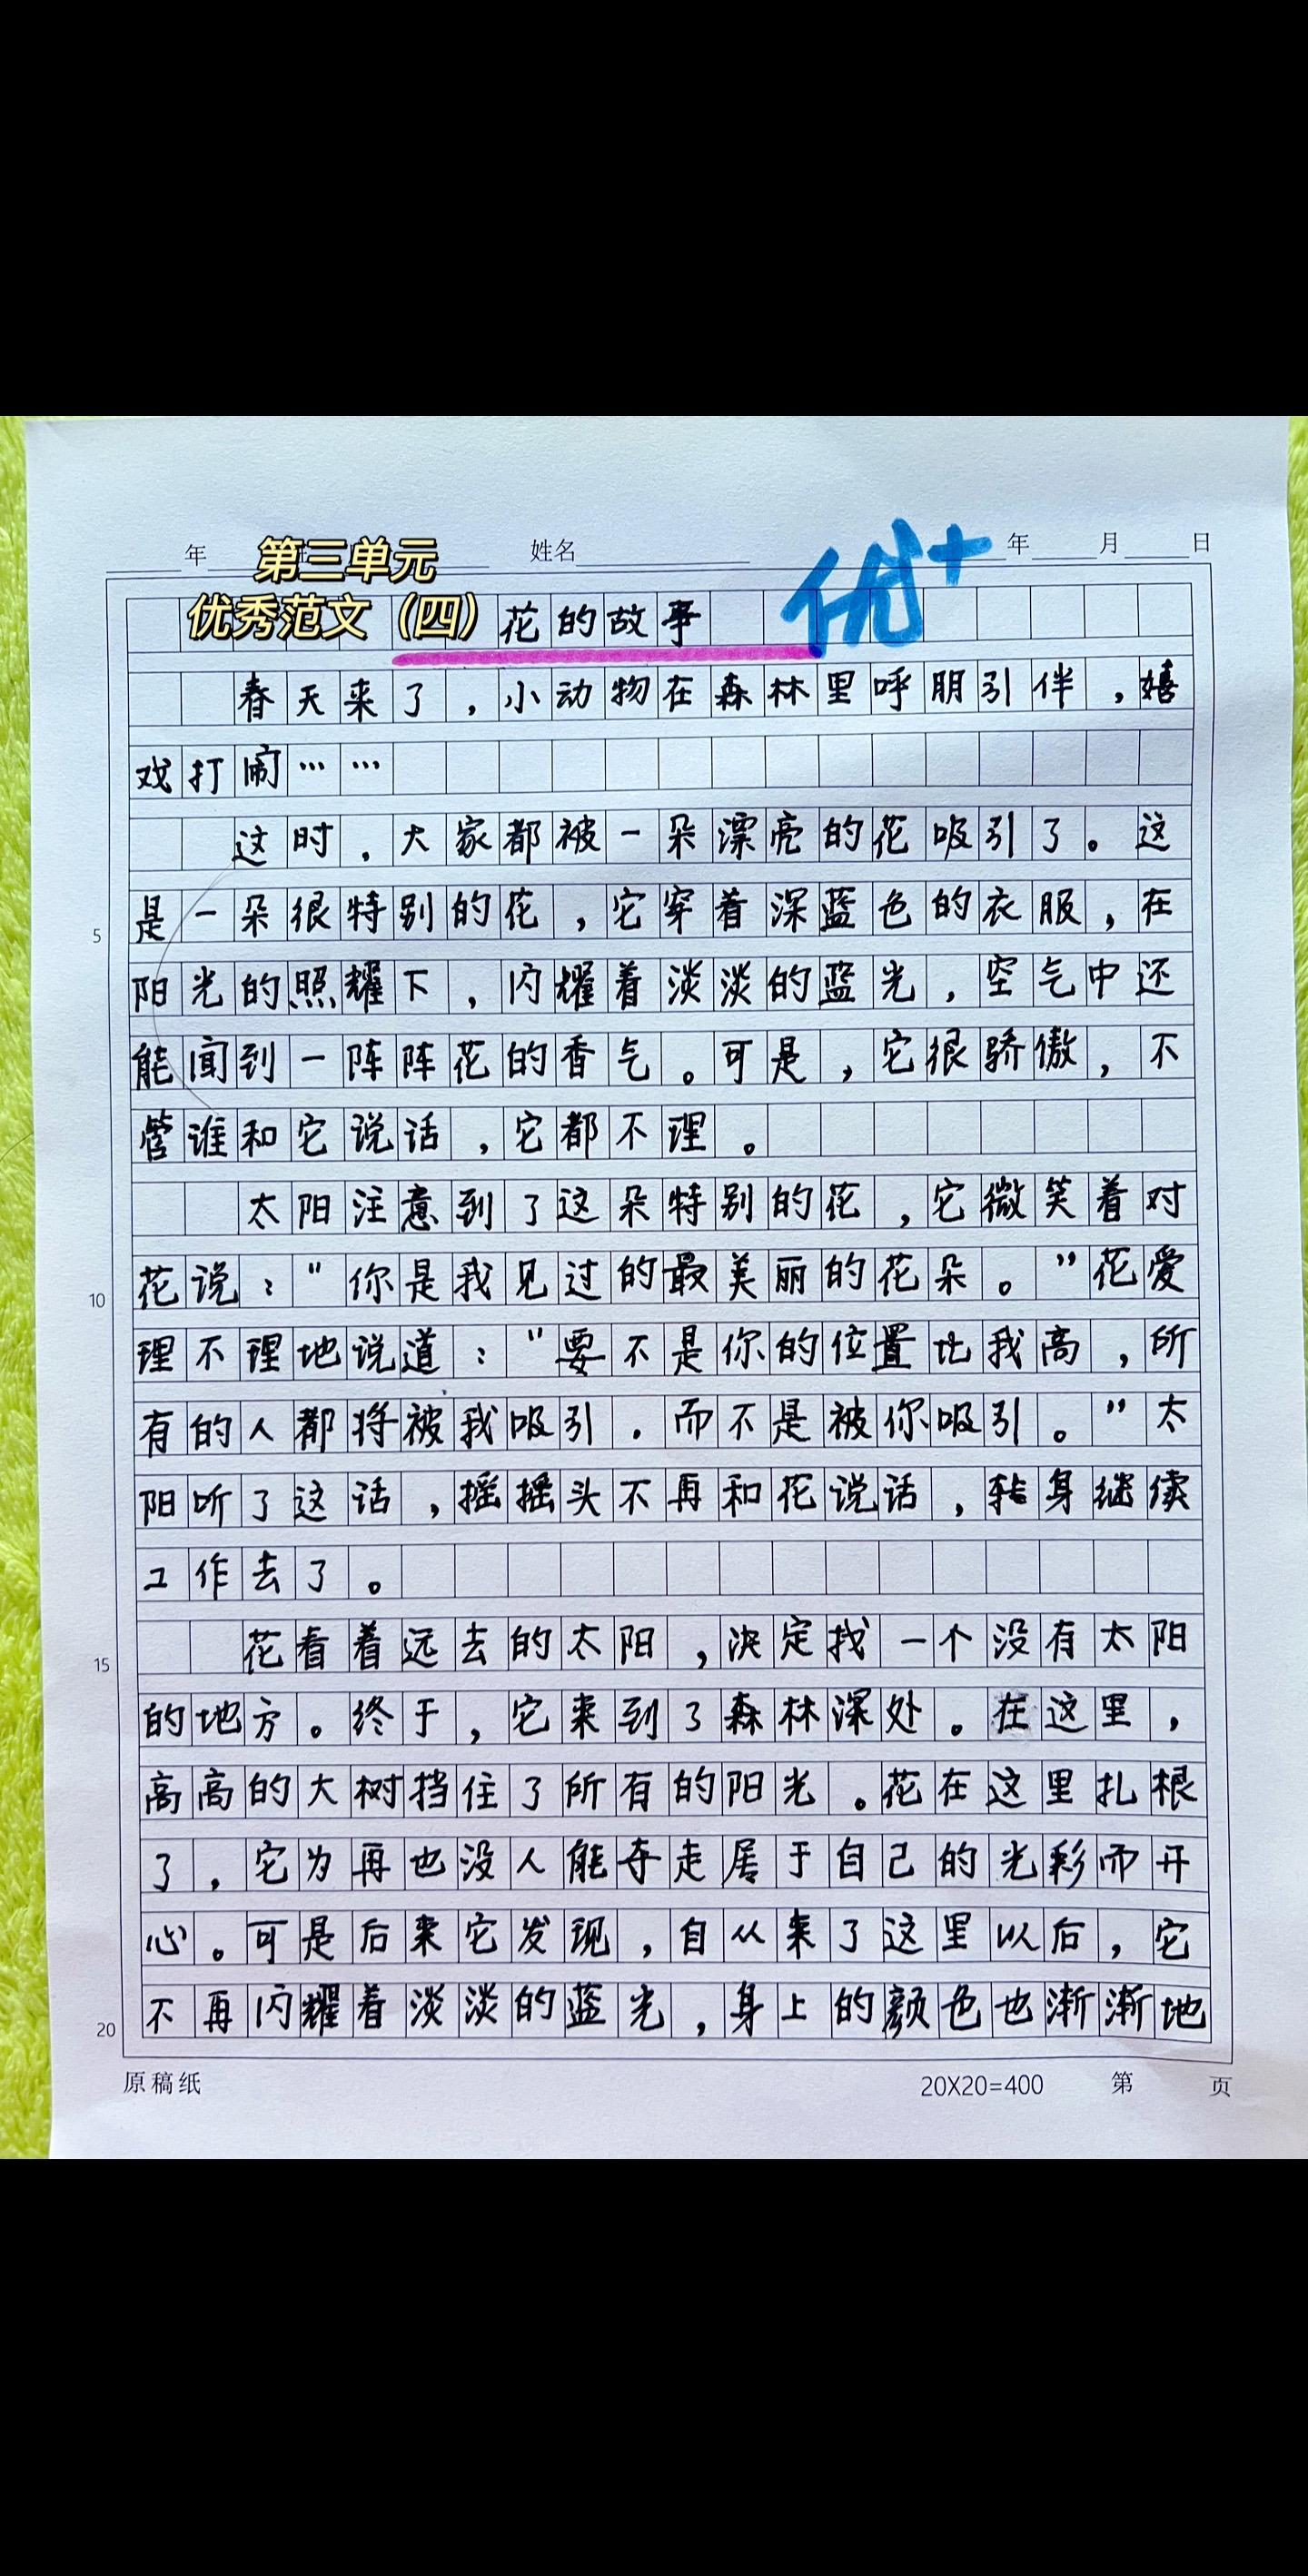 年 第三单元 姓名 年 月 日
优秀范文（四） 花的故事 优+
春天来了，小动物在森林里呼朋引伴，嬉
戏打闹……
这时，大家都被一朵漂亮的花吸引了。这
是一朵很特别的花，它穿着深蓝色的衣服，在
5
阳光的照耀下，闪耀着淡淡的蓝光，空气中还
能闻到一阵阵花的香气。可是，它很骄傲，不
管谁和它说话，它都不理。
太阳注意到了这朵特别的花，它微笑着对
花说：“你是我见过的最美丽的花朵。”花爱
10
理不理地说道：“要不是你的位置比我高，所
有的人都将被我吸引．而不是被你吸引。”太
阳听了这话，摇摇头不再和花说话，转身继续
工作去了。
花看着远去的太阳，决定找一个没有太阳
15
的地方。终于，它来到了森林深处。在这里，
高高的大树挡住了所有的阳光。花在这里扎根
了，它为再也没人能夺走属于自己的光彩而开
心。可是后来它发现，自从来了这里以后，它
不再闪耀着淡淡的蓝光，身上的颜色也渐渐地
20
原稿纸 20X20=400 第 页